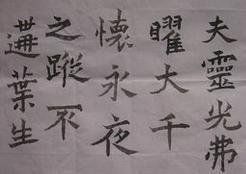 夫靈光弗
曜大千
懷永夜
之蹤不
遘葉生